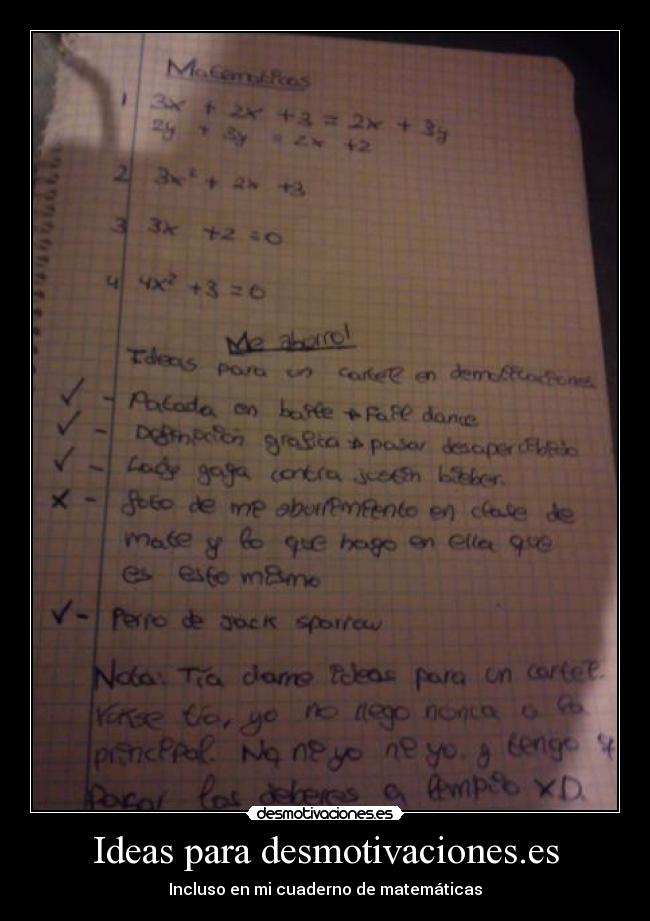 Matematicas
1 3x + 2x + 3 = 2x + 3y
2y + 3y = 2x + 2
2 3x² + 2x + 3
3 3x + 2 = 0
4 4x² + 3 = 0
Me aburro!
Ideas para un cartel en demotivaciones
✓ - Patada en baile → Fail dance
✓ - Definición grafica → pasar desapercibido
✓ - Lady gaga contra justin bieber.
x - foto de mi aburrimiento en clase de
mate y lo que hago en ella que
es esto mismo
✓ - Perro de Jack sparrow
Nota: Tía dame ideas para un cartel.
tía, yo no llego nunca a la
principal. Na ni yo ni yo. y tengo q
pasar los deberes a limpio XD.
desmotivaciones.es
Ideas para desmotivaciones.es
Incluso en mi cuaderno de matemáticas